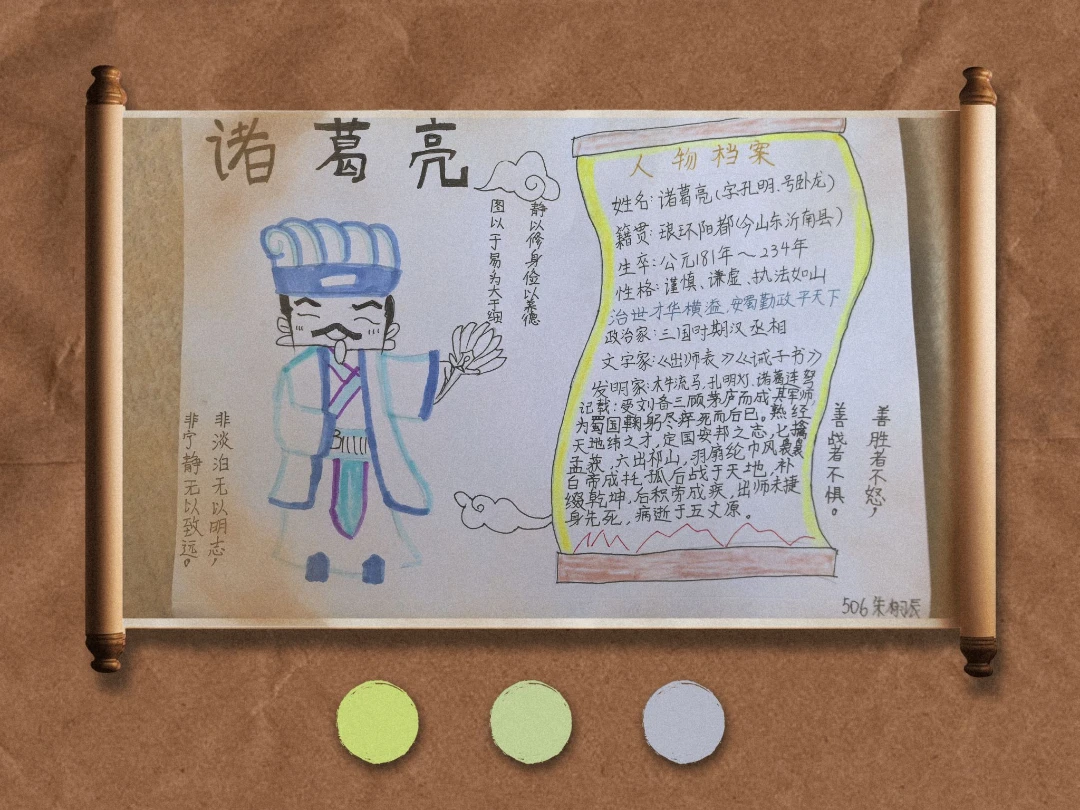 诸葛亮
静以修身俭以养德
图以于易为大于细
非淡泊无以明志，
非宁静无以致远。
人物档案
姓名：诸葛亮(字孔明、号卧龙)
籍贯：琅环阳都(今山东沂南县)
生卒：公元181年～234年
性格：谨慎、谦虚、执法如山
治世才华横溢，安蜀勤政平天下
政治家：三国时期汉丞相
文字家：《出师表》《诫子书》
发明家：木牛流马，孔明灯、诸葛连弩
记载：受刘备三顾茅庐而成其军师
为蜀国鞠躬尽瘁死而后已。熟经
天地纬之才，定国安邦之志，七擒
孟获，六出祁山，羽扇纶巾风
白帝成托孤后战于天地，补
缀乾坤，后积劳成疾，出师未捷
身先死，病逝于五丈原。
善胜者不怒，
善战者不惧。
506 朱